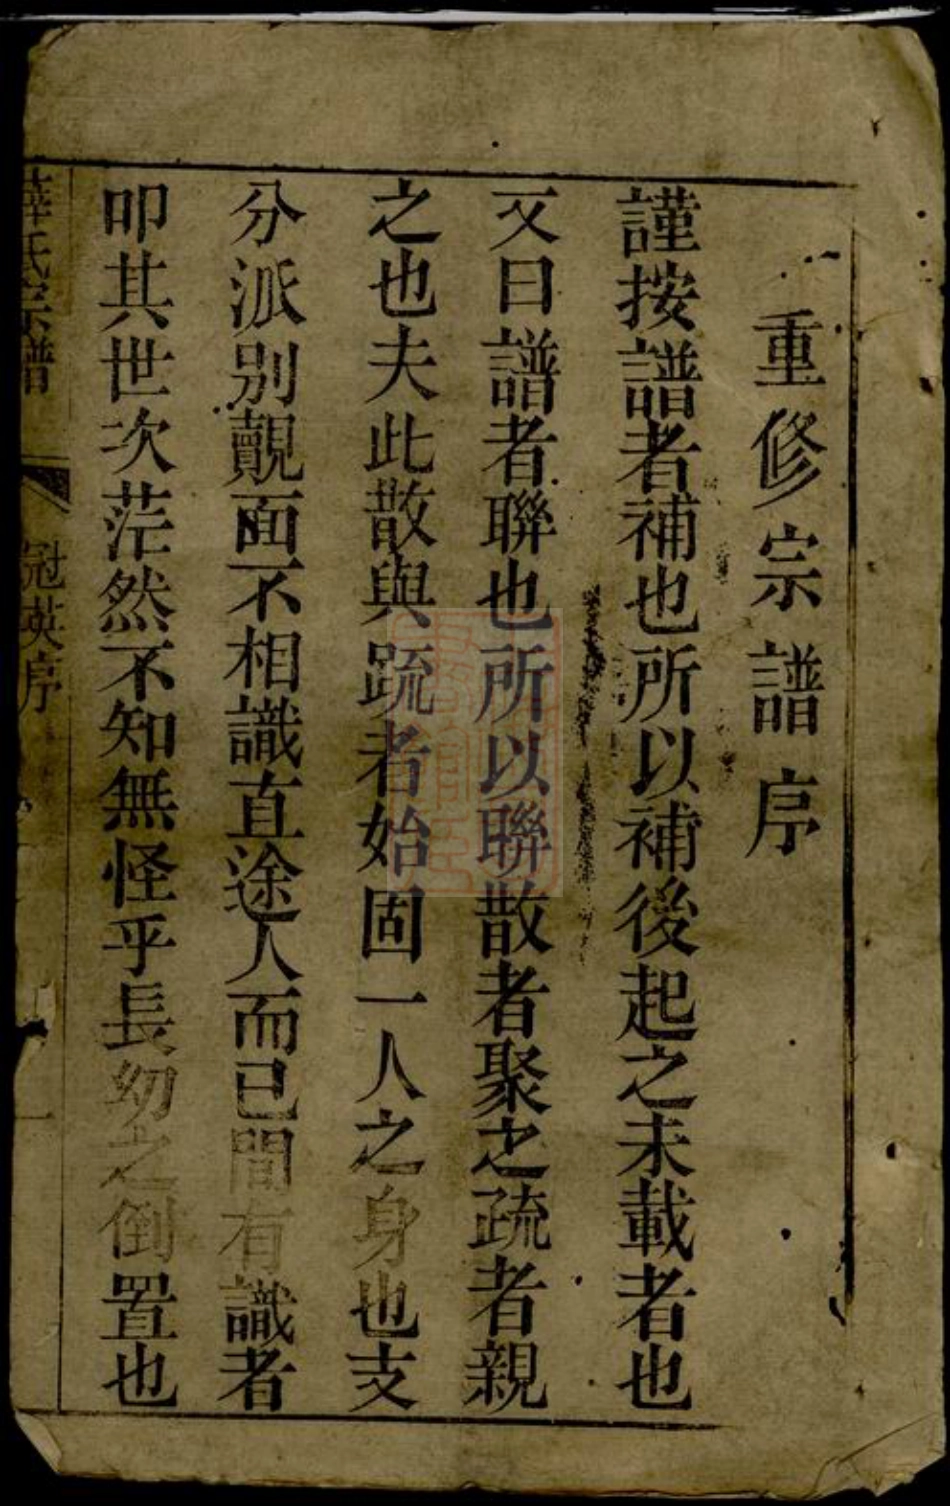 重修宗譜序
謹按譜者補也所以補後起之未載者也
又曰譜者聯也所以聯散者聚之疏者親
之也夫此散與疏者始固一人之身也支
分派別覿面不相識直途人而已間有識者
叩其世次茫然不知無怪乎長幼之倒置也
薛氏宗譜
冠英序
一